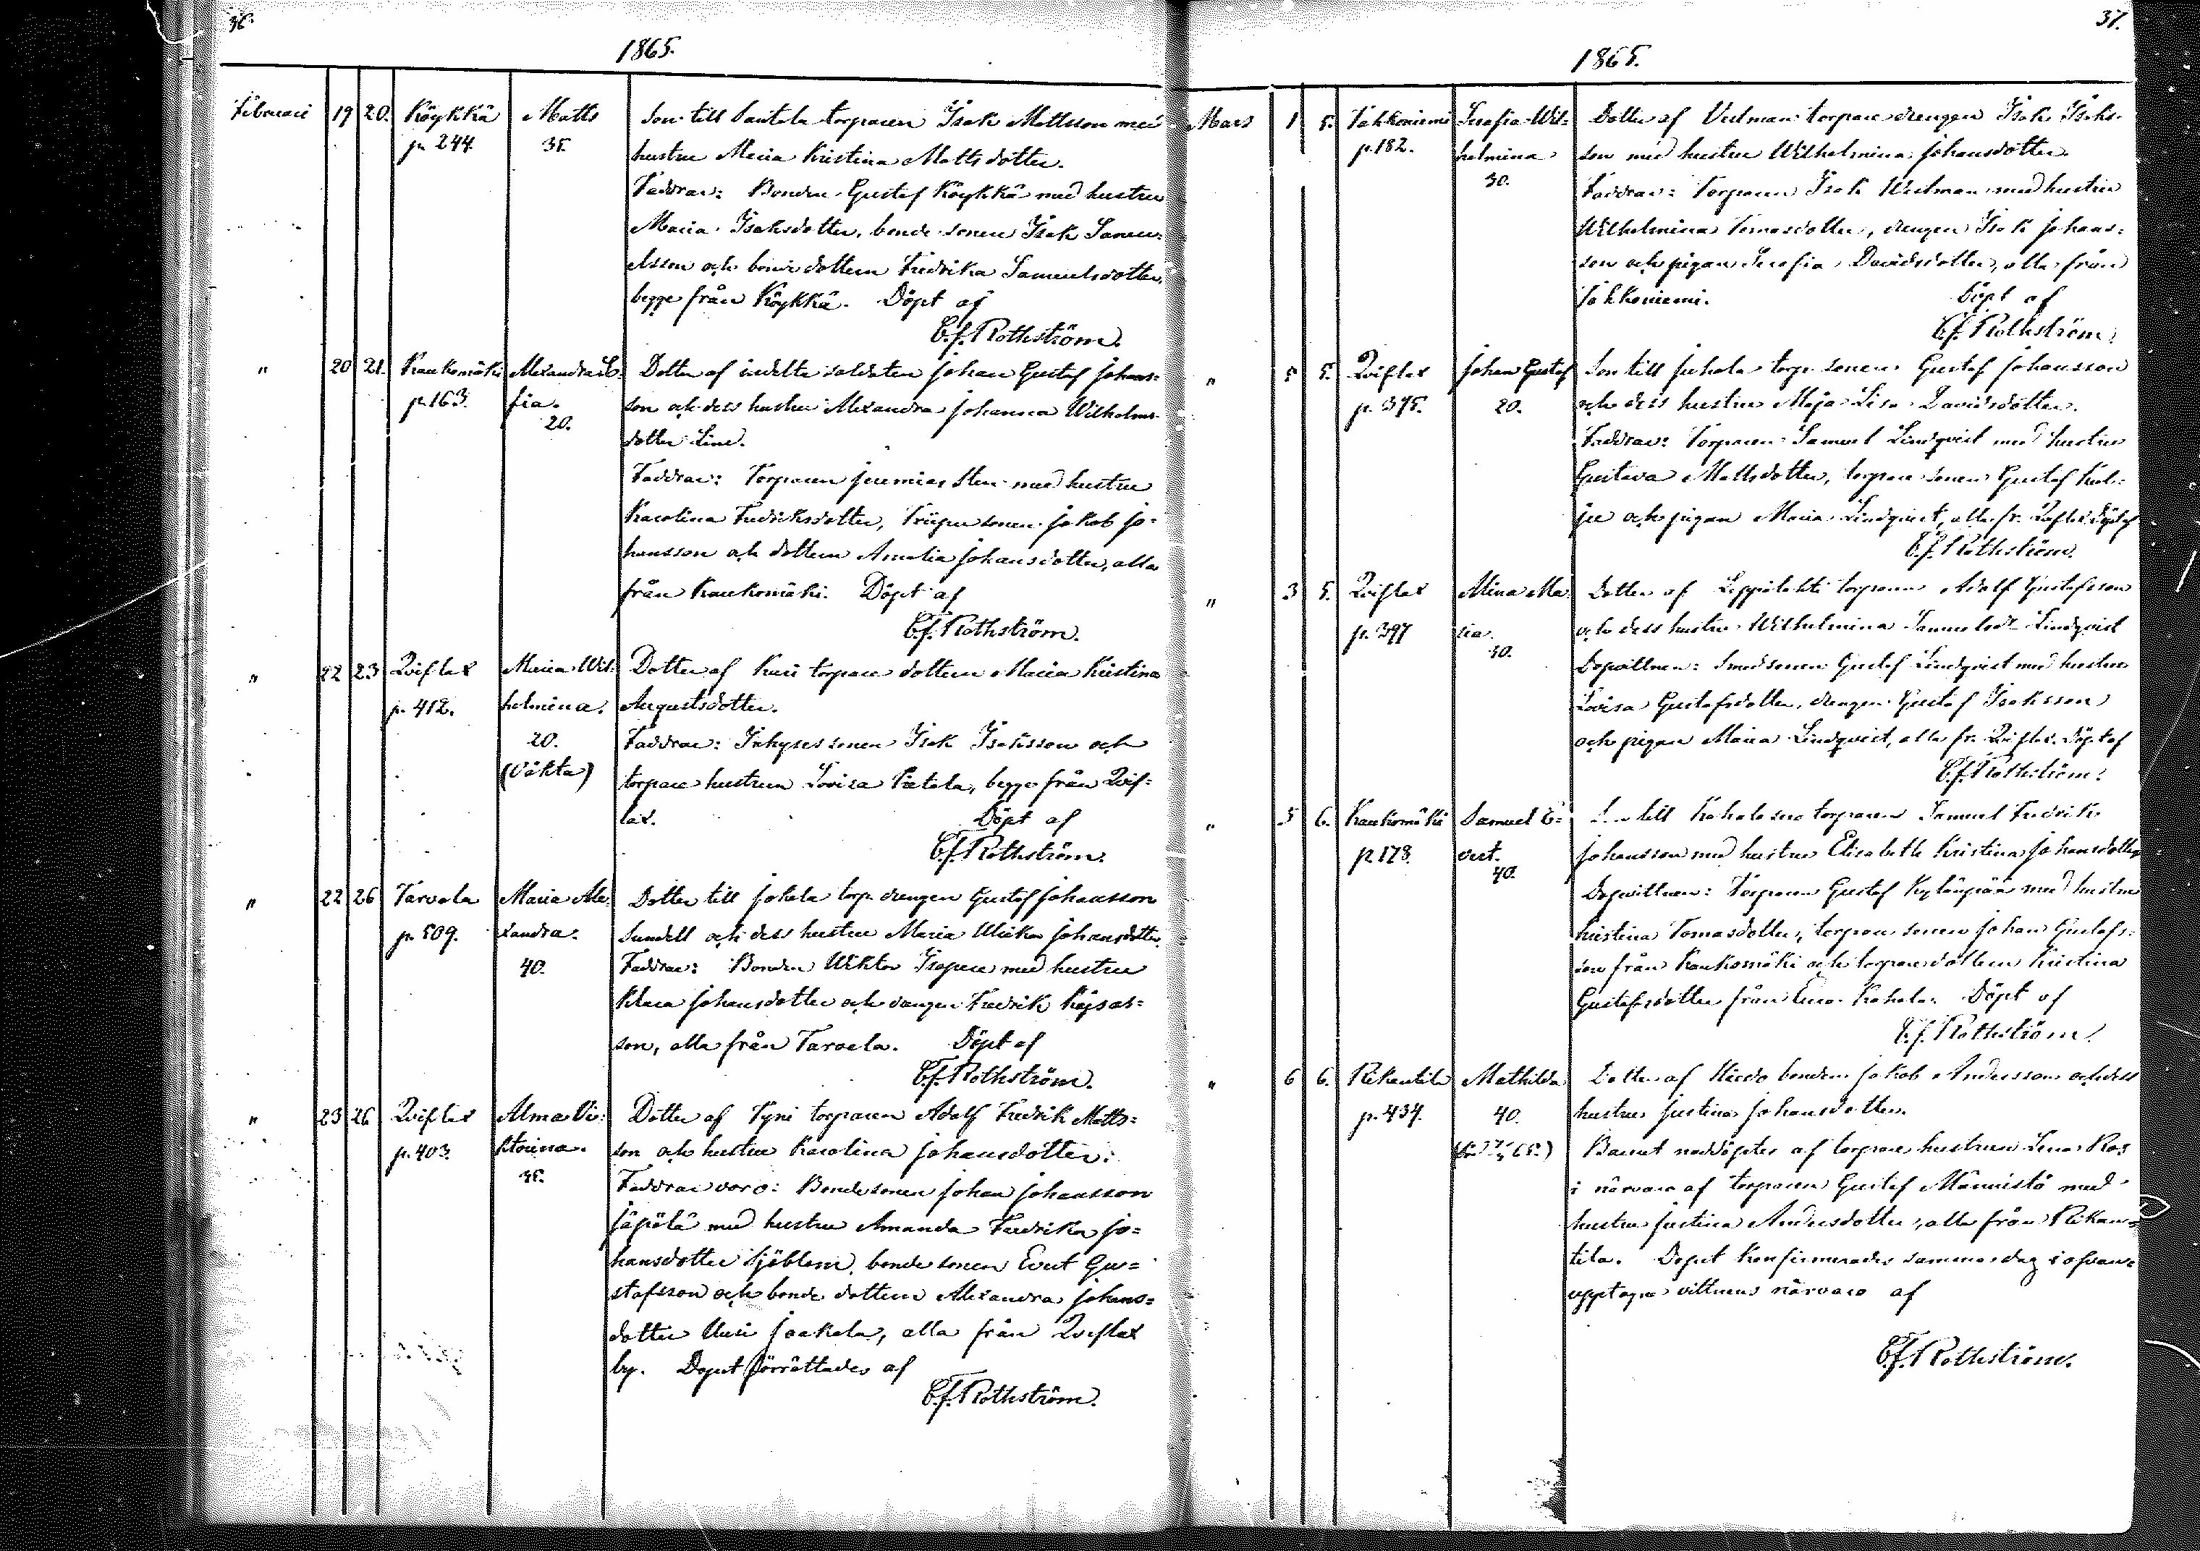 36.
1865.
Februari 19 20. Köykkä Matts Son till Santala torparen Isak Mattsson med
p. 244. 35. hustru Maria Kristina Mattsdotter.
Faddrar: Bonden Gustaf Köykkä med hustru
Maria Isaksdotter, bonde sonen Isak Samu-
elsson och bonde dottern Fredrika Samuelsdotter,
begge från Köykkä. Döpt af
C.f. Rothström.
" 20 21. Kaukomäki Alexandra So- Dotter af indelte soldaten Johan Gustaf Johans-
p. 163. fia. son och dess hustru Alexandra Johanna Wilhelms-
20. dotter Lind.
Faddrar: Torparen Jeremias Sten med hustru
Karolina Fredriksdotter, sonen Jakob Jo-
hansson och dottern Amalia Johansdotter, alla
från Kaukomäki. Döpt af
C.f. Rothström.
" 22 23 Qviflax Maria Wil- Dotter af torpare dottern Maria Kristina
p. 412. helmina. Augustsdotter.
20. Faddrar: Inhyses sonen Isak Isaksson och
(oäkta) torpare hustrun Lovisa Pietola, begge från Qvif-
lax. Döpt af
C.f. Rothström.
" 22 26 Tarvola Maria Ale- Dotter till Jokela torp. drengen Gustaf Johansson
p. 509. xandra. Sundell och dess hustru Maria Ulrika Johansdotter.
40. Faddrar: Bonden Wiktor Isopere med hustru
Klara Johansdotter och drengen Fredrik Kajsas-
son, alla från Tarvola. Döpt af
C.f. Rothström.
" 23 26 Qviflax Alma Vi- Dotter af Tyni torparen Adolf Fredrik Matts-
p. 403. ktorina. son och hustru Karolina Johansdotter.
35. Faddrar voro: Bondesonen Johan Johansson
Jäpölä med hustru Amanda Fredrika Jo-
hansdotter Sjöblom, bonde sonen Evert Gu-
stafsson och bonde dottern Alexandra Johans-
dotter Uusi Jaakola, alla från Qviflax
by. Dopet förrättades af
C.f. Rothström.
37.
1865.
Mars 1 5. Jakkoniemi Serafia Wil- Dotter af torpare drengen Isak Isaks-
p. 182. helmina. son med hustru Wilhelmina Johansdotter.
30. Faddrar: Torparen Isak med hustru
Wilhelmina Tomasdotter, drengen Isak Johans-
son och pigan Serafia Davidsdotter, alla från
Jakkoniemi. Döpt af
C.f. Rothström.
" 5 5. Qviflax Johan Gustaf Son till Juhola torp. sonen Gustaf Johansson
p. 375. 20. och dess hustru Maja Lisa Davidsdotter.
Faddrar: Torparen Samuel Lindqvist med hustru
Gustava Mattsdotter, torpare sonen Gustaf
och pigan Maria Lindqvist, alla fr. Qviflax. Döpt af
C.f. Rothström.
" 3 5. Qviflax Alina Ma- Dotter af Leppälahti torparen Adolf Gustafsson
p. 397 ria. och dess hustru Wilhelmina Samuelsdr Lindqvist
40. Dopvittnen: Smedsonen Gustaf Lindqvist med hustru
Lovisa Gustafsdotter, drengen Gustaf Isaksson
och pigan Maria Lindqvist, alla fr. Qviflax. Döpt af
C.f. Rothström.
" 5 6. Kaukomäki Samuel E- Son till Kahala torparen Samuel Fredrik
p. 178. vert. Johansson med hustru Elisabeth Kristina Johansdotter
40. Dopvittnen: Torparen Gustaf Kylänpää med hustru
Kristina Tomasdotter, torpare sonen Johan Gustafs-
son från Kaukomäki och torpare dottern Kristina
Gustafsdotter från Kahala. Döpt af
C.f. Rothström.
" 6 6. Rekentila Mathilda Dotter af bonden Jakob Andersson och dess
p. 434. 40. hustru Justina Johansdotter.
Barnet nöddöptes af torpare hustrun Lena Ros
i närvaro af torparen Gustaf Männistö med
hustru Justina Andersdotter, alla från Reken-
tila. Dopet konfirmerades samma dag i ofvan-
upptagne vittnens närvaro af
C.f. Rothström.